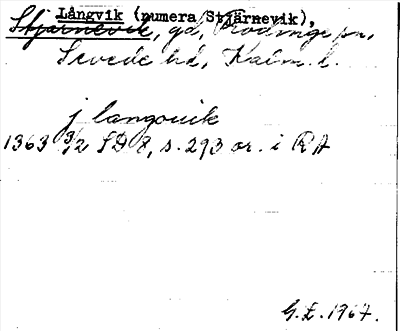 Långvik (numera Stjärnevik),
Stjärnevik, gd, Rödinge sn,
Sevede hd, Kalm. l.
j langouik
1363 3/2 SD 8, s. 293 or. i RA
G.L. 1967.